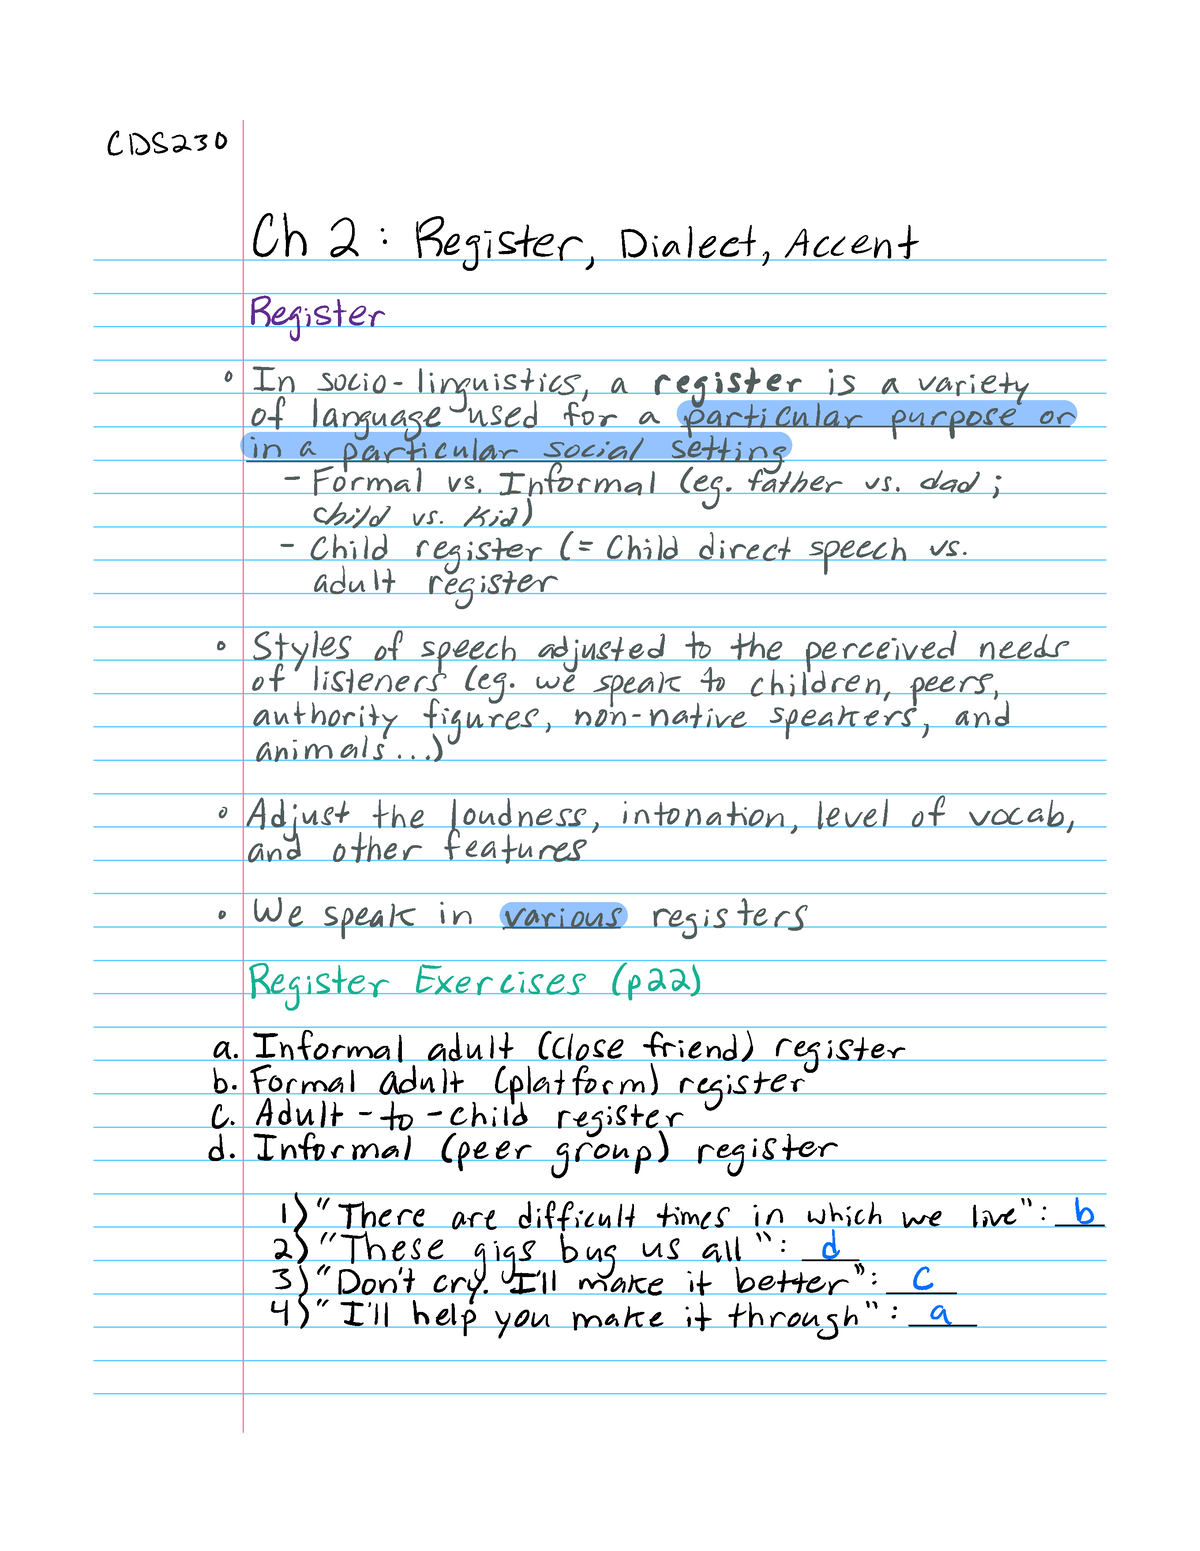 CDS230
Ch 2: Register, Dialect, Accent
Register
° In socio-linguistics, a register is a variety
of language used for a particular purpose or
in a particular social setting
- Formal vs. Informal (eg. father vs. dad;
child vs. kid)
- Child register (= Child direct speech vs.
adult register
° Styles of speech adjusted to the perceived needs
of listeners (eg. we speak to children, peers,
authority figures, non-native speakers, and
animals...)
° Adjust the loudness, intonation, level of vocab,
and other features
° We speak in various registers
Register Exercises (p22)
a. Informal adult (close friend) register
b. Formal adult (platform) register
c. Adult-to-child register
d. Informal (peer group) register
1) "There are difficult times in which we live": b
2) "These gigs bug us all": d
3) "Don't cry. I'll make it better": c
4) "I'll help you make it through": a